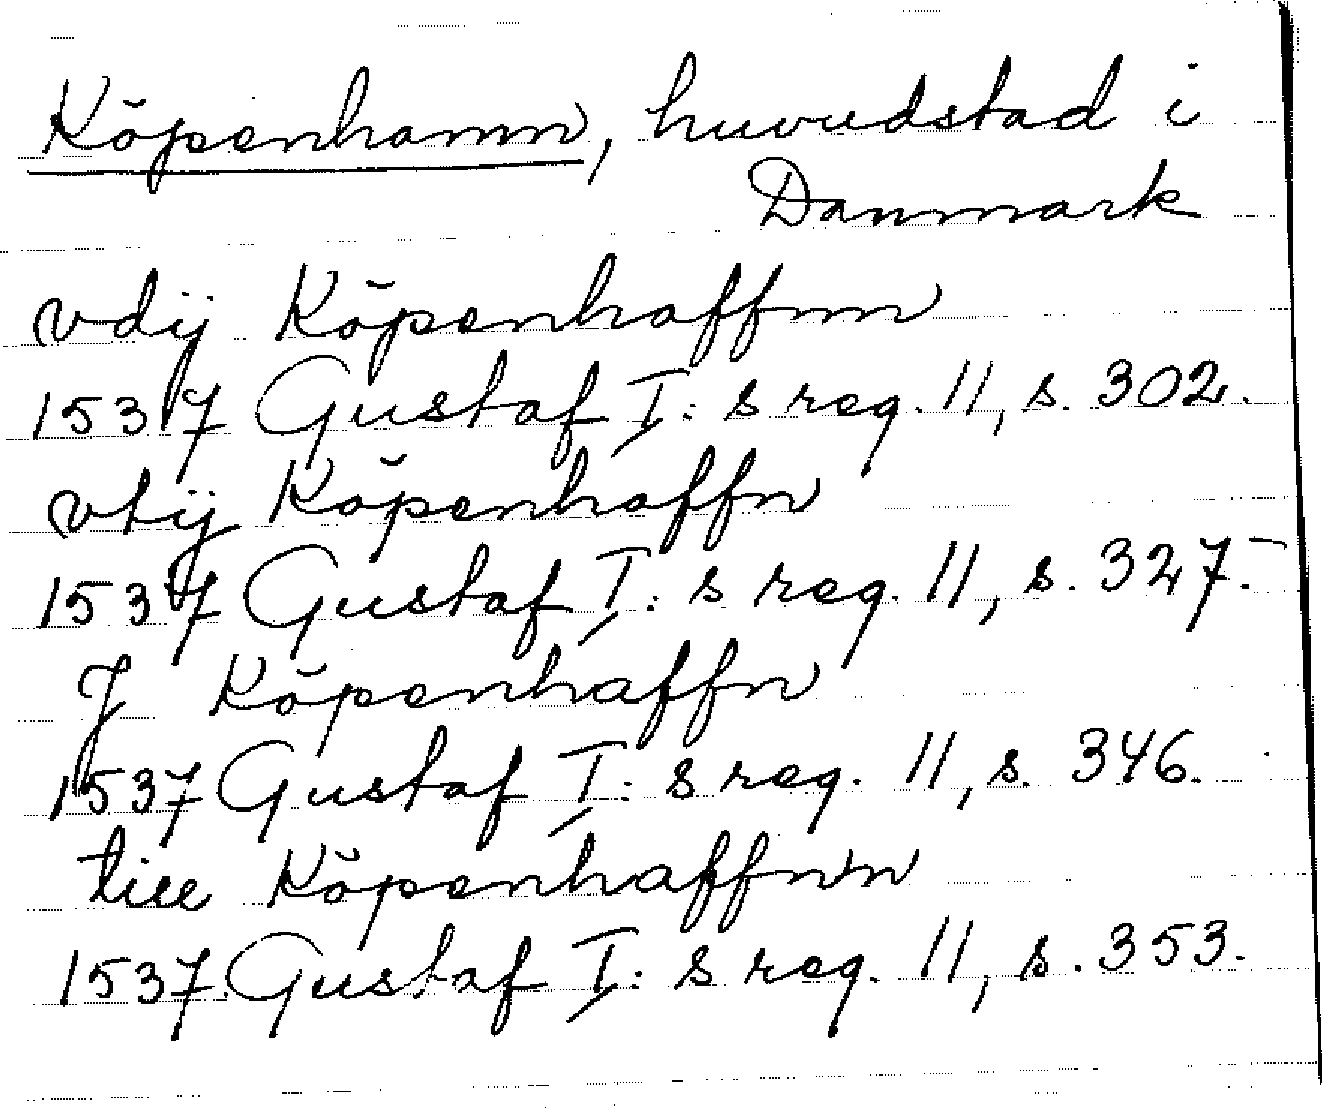 Köpenhamn, huvudstad i
Danmark
vdij Köpenhaffnn
1537 Gustaf I:s reg. 11, s. 302.
vtij Köpenhaffn
1537 Gustaf I:s reg. 11, s. 327.
J Köpenhaffn
1537 Gustaf I:s reg. 11, s. 346.
till Köpenhaffnn
1537 Gustaf I:s reg. 11, s. 353.